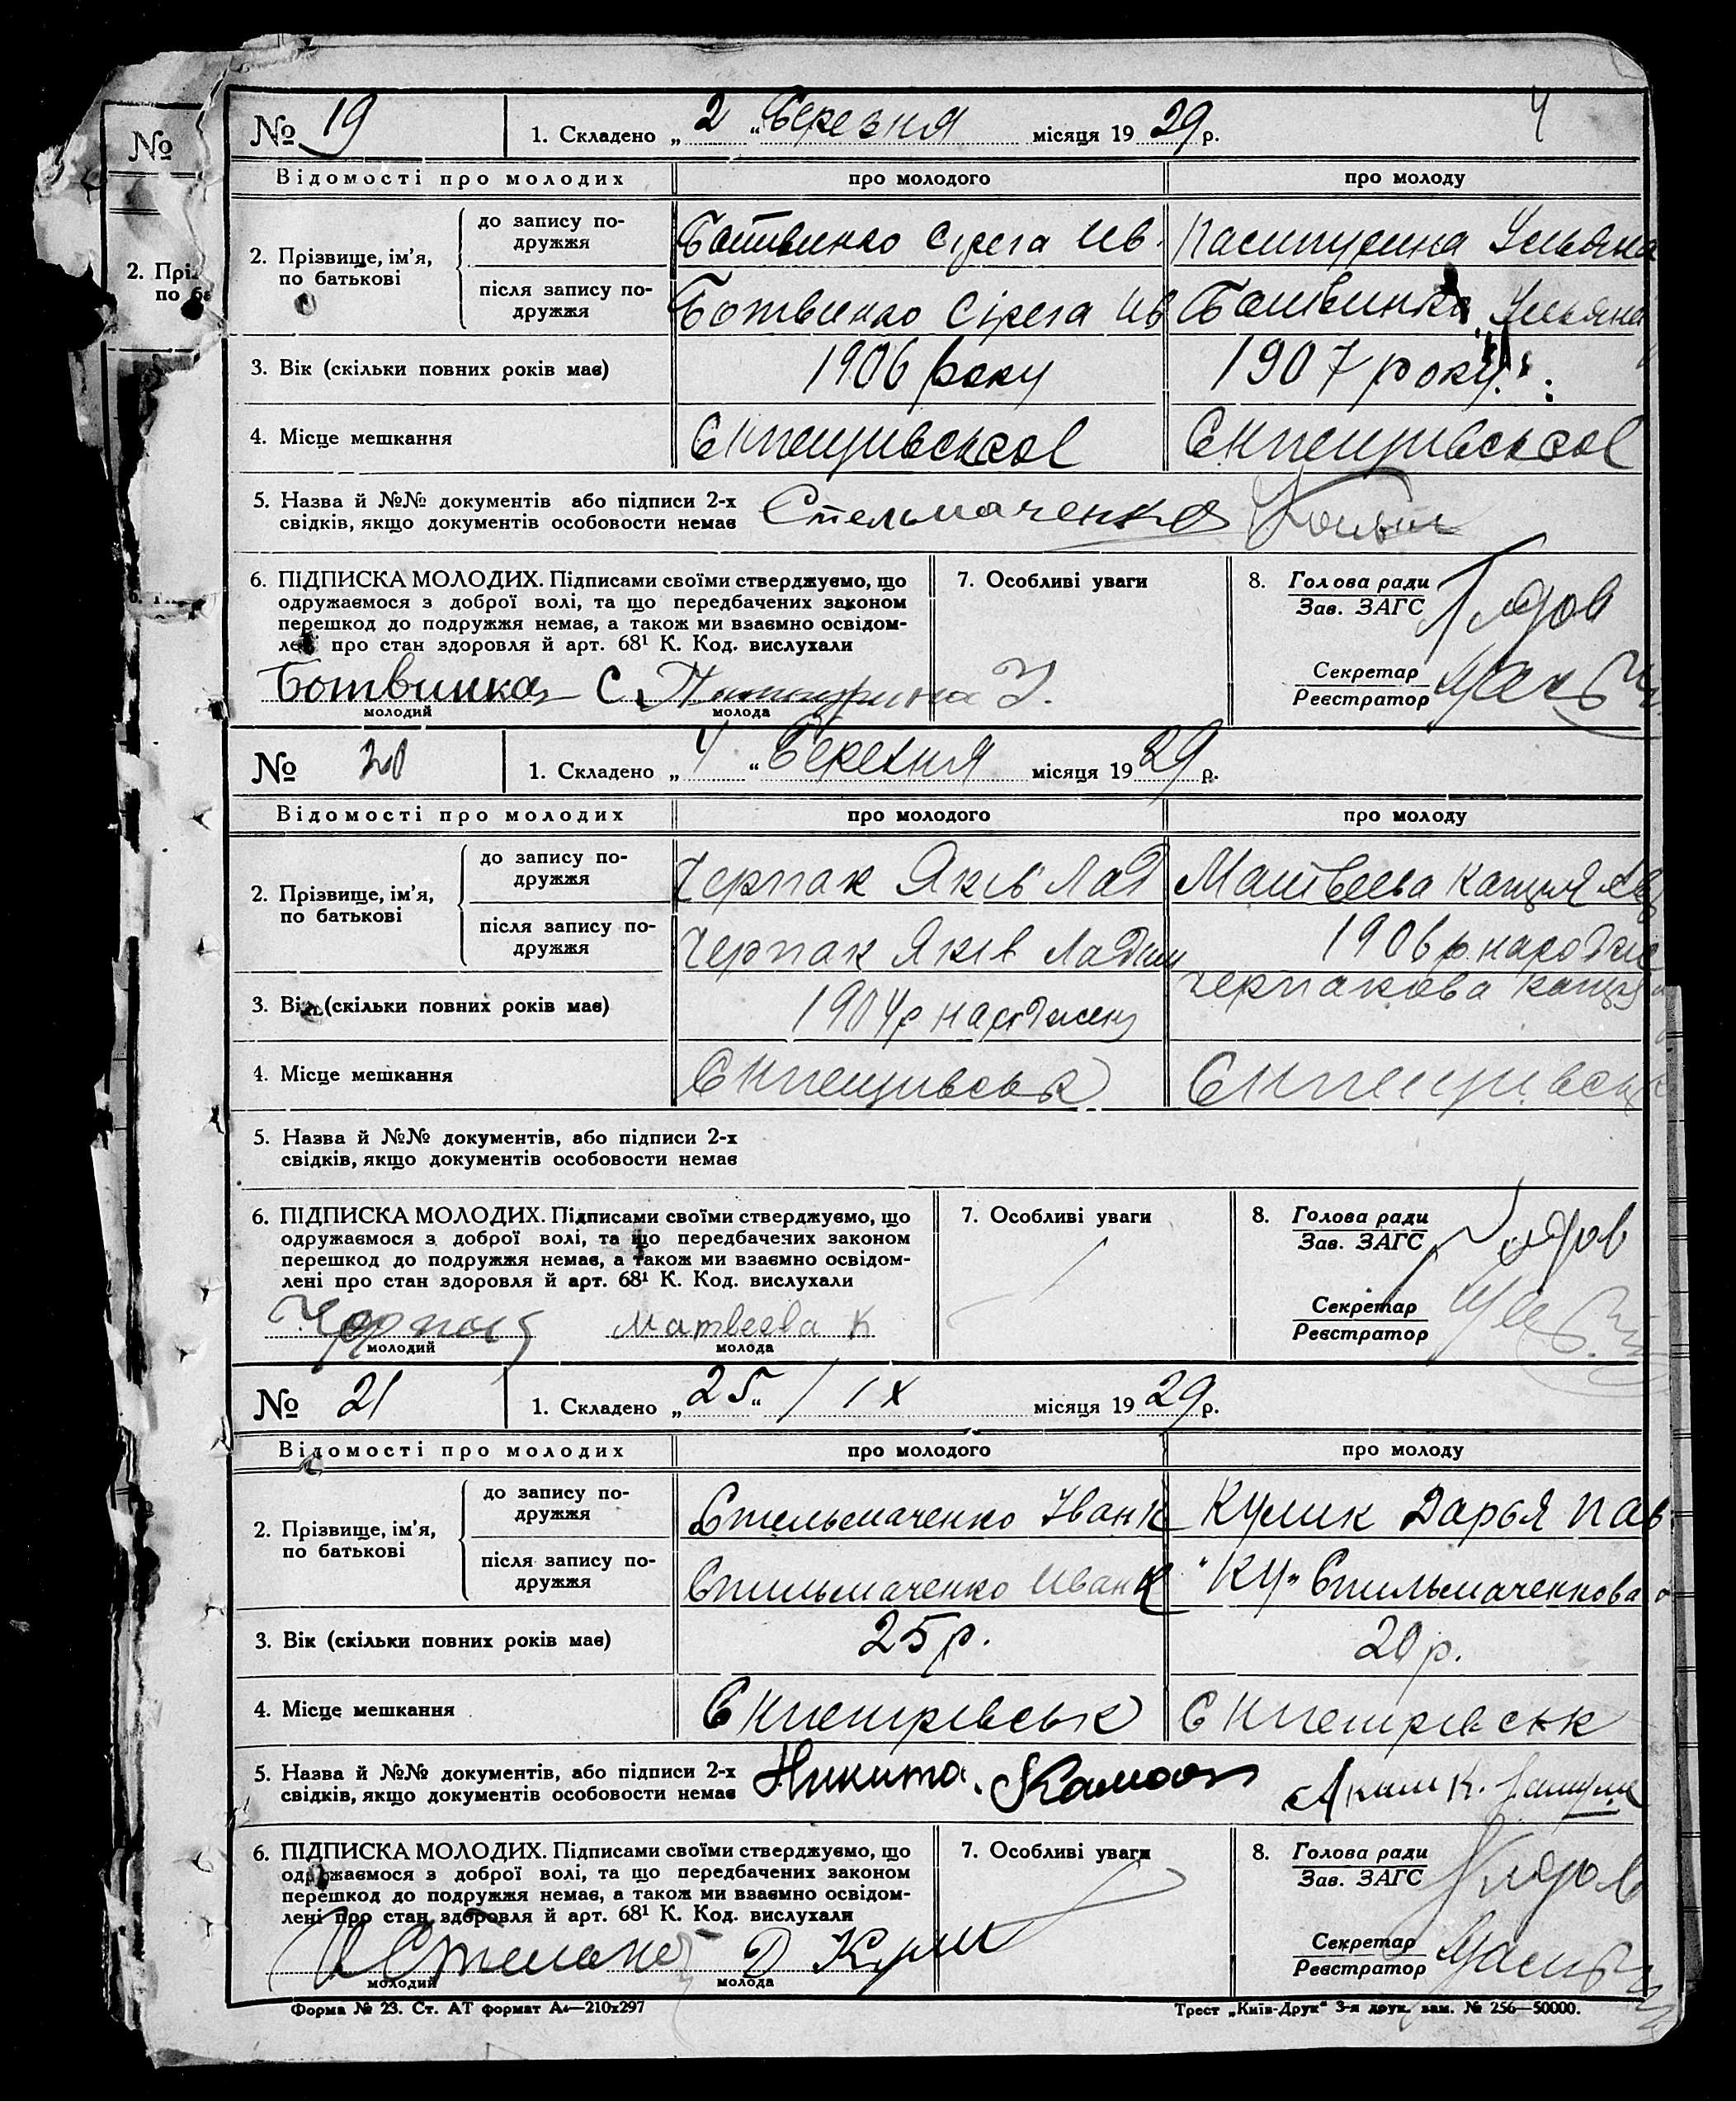 №
2. Прі
по ба
4
№ 19 1. Складено „2“ березня місяця 1929 р.
Відомості про молодих про молодого про молоду
2. Прізвище, ім’я, по батькові
до запису подружжя Ботвинко Сірега Ив. Ульяна
після запису подружжя Ботвинко Сірега Ив Ботвинко Ульяна
3. Вік (скільки повних років має) 1906 року 1907 року
4. Місце мешкання
5. Назва й №№ документів або підписи 2-х
свідків, якщо документів особовости немає Стельмаченко
6. ПІДПИСКА МОЛОДИХ. Підписами своїми стверджуємо, що
одружаємося з доброї волі, та що передбачених законом
перешкод до подружжя немає, а також ми взаємно освідом-
лені про стан здоровля й арт. 68¹ К. Код. вислухали
Ботвинко С. У.
молодий молода
7. Особливі уваги
8. Голова ради
Зав. ЗАГС
Секретар
Реєстратор
№ 20 1. Складено „4“ Березня місяця 1929 р.
Відомості про молодих про молодого про молоду
2. Прізвище, ім’я, по батькові
до запису подружжя Черпак Яків Лад Матвеева
після запису подружжя Черпак Яків 1906 р.
3. Вік (скільки повних років має) 1904 р Черпакова
4. Місце мешкання
5. Назва й №№ документів, або підписи 2-х
свідків, якщо документів особовости немає
6. ПІДПИСКА МОЛОДИХ. Підписами своїми стверджуємо, що
одружаємося з доброї волі, та що передбачених законом
перешкод до подружжя немає, а також ми взаємно освідом-
лені про стан здоровля й арт. 68¹ К. Код. вислухали
Матвеева К
молодий молода
7. Особливі уваги
8. Голова ради
Зав. ЗАГС
Секретар
Реєстратор
№ 21 1. Складено „25“ / IX місяця 1929 р.
Відомості про молодих про молодого про молоду
2. Прізвище, ім’я, по батькові
до запису подружжя Стильмаченко Іван К Кулик Дарья Пав
після запису подружжя Стильмаченко Иван К "Ку" Стильмаченкова
3. Вік (скільки повних років має) 25 р. 20 р.
4. Місце мешкання Є Кпетрівськ Є Кпетрівськ
5. Назва й №№ документів, або підписи 2-х
свідків, якщо документів особовости немає Никита
6. ПІДПИСКА МОЛОДИХ. Підписами своїми стверджуємо, що
одружаємося з доброї волі, та що передбачених законом
перешкод до подружжя немає, а також ми взаємно освідом-
лені про стан здоровля й арт. 68¹ К. Код. вислухали
Д
молодий молода
7. Особливі уваги
8. Голова ради
Зав. ЗАГС
Секретар
Реєстратор
Форма № 23. Ст. АТ формат А4—210х297 Трест „Київ-Друк“ 3-я друк. зам. № 256—50000.